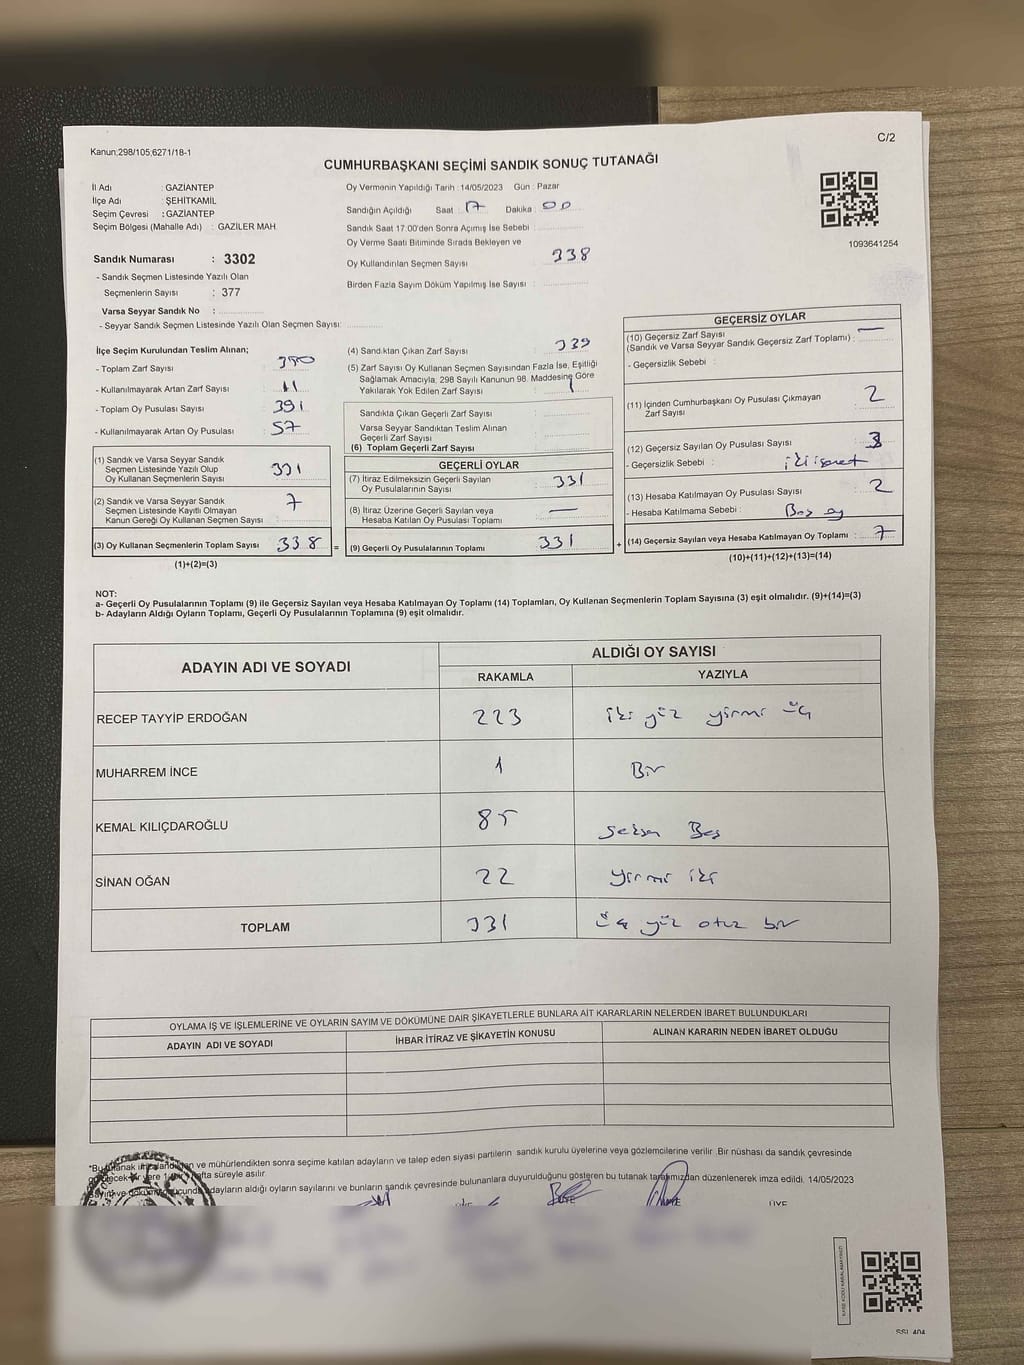 C/2
Kanun;298/105;6271/18-1
CUMHURBAŞKANI SEÇİMİ SANDIK SONUÇ TUTANAĞI
İl Adı : GAZİANTEP
İlçe Adı : ŞEHİTKAMİL
Seçim Çevresi : GAZİANTEP
Seçim Bölgesi (Mahalle Adı) : GAZİLER MAH.
Sandık Numarası : 3302
- Sandık Seçmen Listesinde Yazılı Olan
Seçmenlerin Sayısı : 377
Varsa Seyyar Sandık No :
- Seyyar Sandık Seçmen Listesinde Yazılı Olan Seçmen Sayısı:
Oy Vermenin Yapıldığı Tarih : 14/05/2023 Gün : Pazar
Sandığın Açıldığı Saat : 17 Dakika : 00
Sandık Saat 17:00'den Sonra Açımış İse Sebebi :
Oy Verme Saati Bitiminde Sırada Bekleyen ve
Oy Kullandırılan Seçmen Sayısı : 338
Birden Fazla Sayım Döküm Yapılmış İse Sayısı :
1093641254
İlçe Seçim Kurulundan Teslim Alınan;
- Toplam Zarf Sayısı : 350
- Kullanılmayarak Artan Zarf Sayısı : 11
- Toplam Oy Pusulası Sayısı : 391
- Kullanılmayarak Artan Oy Pusulası : 57
(1) Sandık ve Varsa Seyyar Sandık
Seçmen Listesinde Yazılı Olup
Oy Kullanan Seçmenlerin Sayısı : 331
(2) Sandık ve Varsa Seyyar Sandık
Seçmen Listesinde Kayıtlı Olmayan
Kanun Gereği Oy Kullanan Seçmen Sayısı : 7
(3) Oy Kullanan Seçmenlerin Toplam Sayısı : 338
(1)+(2)=(3)
(4) Sandıktan Çıkan Zarf Sayısı : 339
(5) Zarf Sayısı Oy Kullanan Seçmen Sayısından Fazla İse, Eşitliği
Sağlamak Amacıyla, 298 Sayılı Kanunun 98. Maddesine Göre
Yakılarak Yok Edilen Zarf Sayısı : 1
Sandıkta Çıkan Geçerli Zarf Sayısı :
Varsa Seyyar Sandıktan Teslim Alınan
Geçerli Zarf Sayısı :
(6) Toplam Geçerli Zarf Sayısı :
GEÇERLİ OYLAR
(7) İtiraz Edilmeksizin Geçerli Sayılan
Oy Pusulalarının Sayısı : 331
(8) İtiraz Üzerine Geçerli Sayılan veya
Hesaba Katılan Oy Pusulası Toplamı : —
= (9) Geçerli Oy Pusulalarının Toplamı : 331
GEÇERSİZ OYLAR
(10) Geçersiz Zarf Sayısı
(Sandık ve Varsa Seyyar Sandık Geçersiz Zarf Toplamı) : —
- Geçersizlik Sebebi :
(11) İçinden Cumhurbaşkanı Oy Pusulası Çıkmayan
Zarf Sayısı : 2
(12) Geçersiz Sayılan Oy Pusulası Sayısı : 3
- Geçersizlik Sebebi : iki işaret
(13) Hesaba Katılmayan Oy Pusulası Sayısı : 2
- Hesaba Katılmama Sebebi : Boş oy
+ (14) Geçersiz Sayılan veya Hesaba Katılmayan Oy Toplamı : 7
(10)+(11)+(12)+(13)=(14)
NOT:
a- Geçerli Oy Pusulalarının Toplamı (9) ile Geçersiz Sayılan veya Hesaba Katılmayan Oy Toplamı (14) Toplamları, Oy Kullanan Seçmenlerin Toplam Sayısına (3) eşit olmalıdır. (9)+(14)=(3)
b- Adayların Aldığı Oyların Toplamı, Geçerli Oy Pusulalarının Toplamına (9) eşit olmalıdır.
ADAYIN ADI VE SOYADI
ALDIĞI OY SAYISI
RAKAMLA YAZIYLA
RECEP TAYYİP ERDOĞAN 223 iki yüz yirmi üç
MUHARREM İNCE 1 Bir
KEMAL KILIÇDAROĞLU 85 seksen Beş
SİNAN OĞAN 22 yirmi iki
TOPLAM 331 üç yüz otuz bir
OYLAMA İŞ VE İŞLEMLERİNE VE OYLARIN SAYIM VE DÖKÜMÜNE DAİR ŞİKAYETLERLE BUNLARA AİT KARARLARIN NELERDEN İBARET BULUNDUKLARI
ADAYIN ADI VE SOYADI İHBAR İTİRAZ VE ŞİKAYETİN KONUSU ALINAN KARARIN NEDEN İBARET OLDUĞU
ve mühürlendikten sonra seçime katılan adayların ve talep eden siyasi partilerin sandık kurulu üyelerine veya gözlemcilerine verilir .Bir nüshası da sandık çevresinde
hafta süreyle asılır.
adayların aldığı oyların sayılarını ve bunların sandık çevresinde bulunanlara duyurulduğunu gösteren bu tutanak tarafımızdan düzenlenerek imza edildi. 14/05/2023
ÜYE